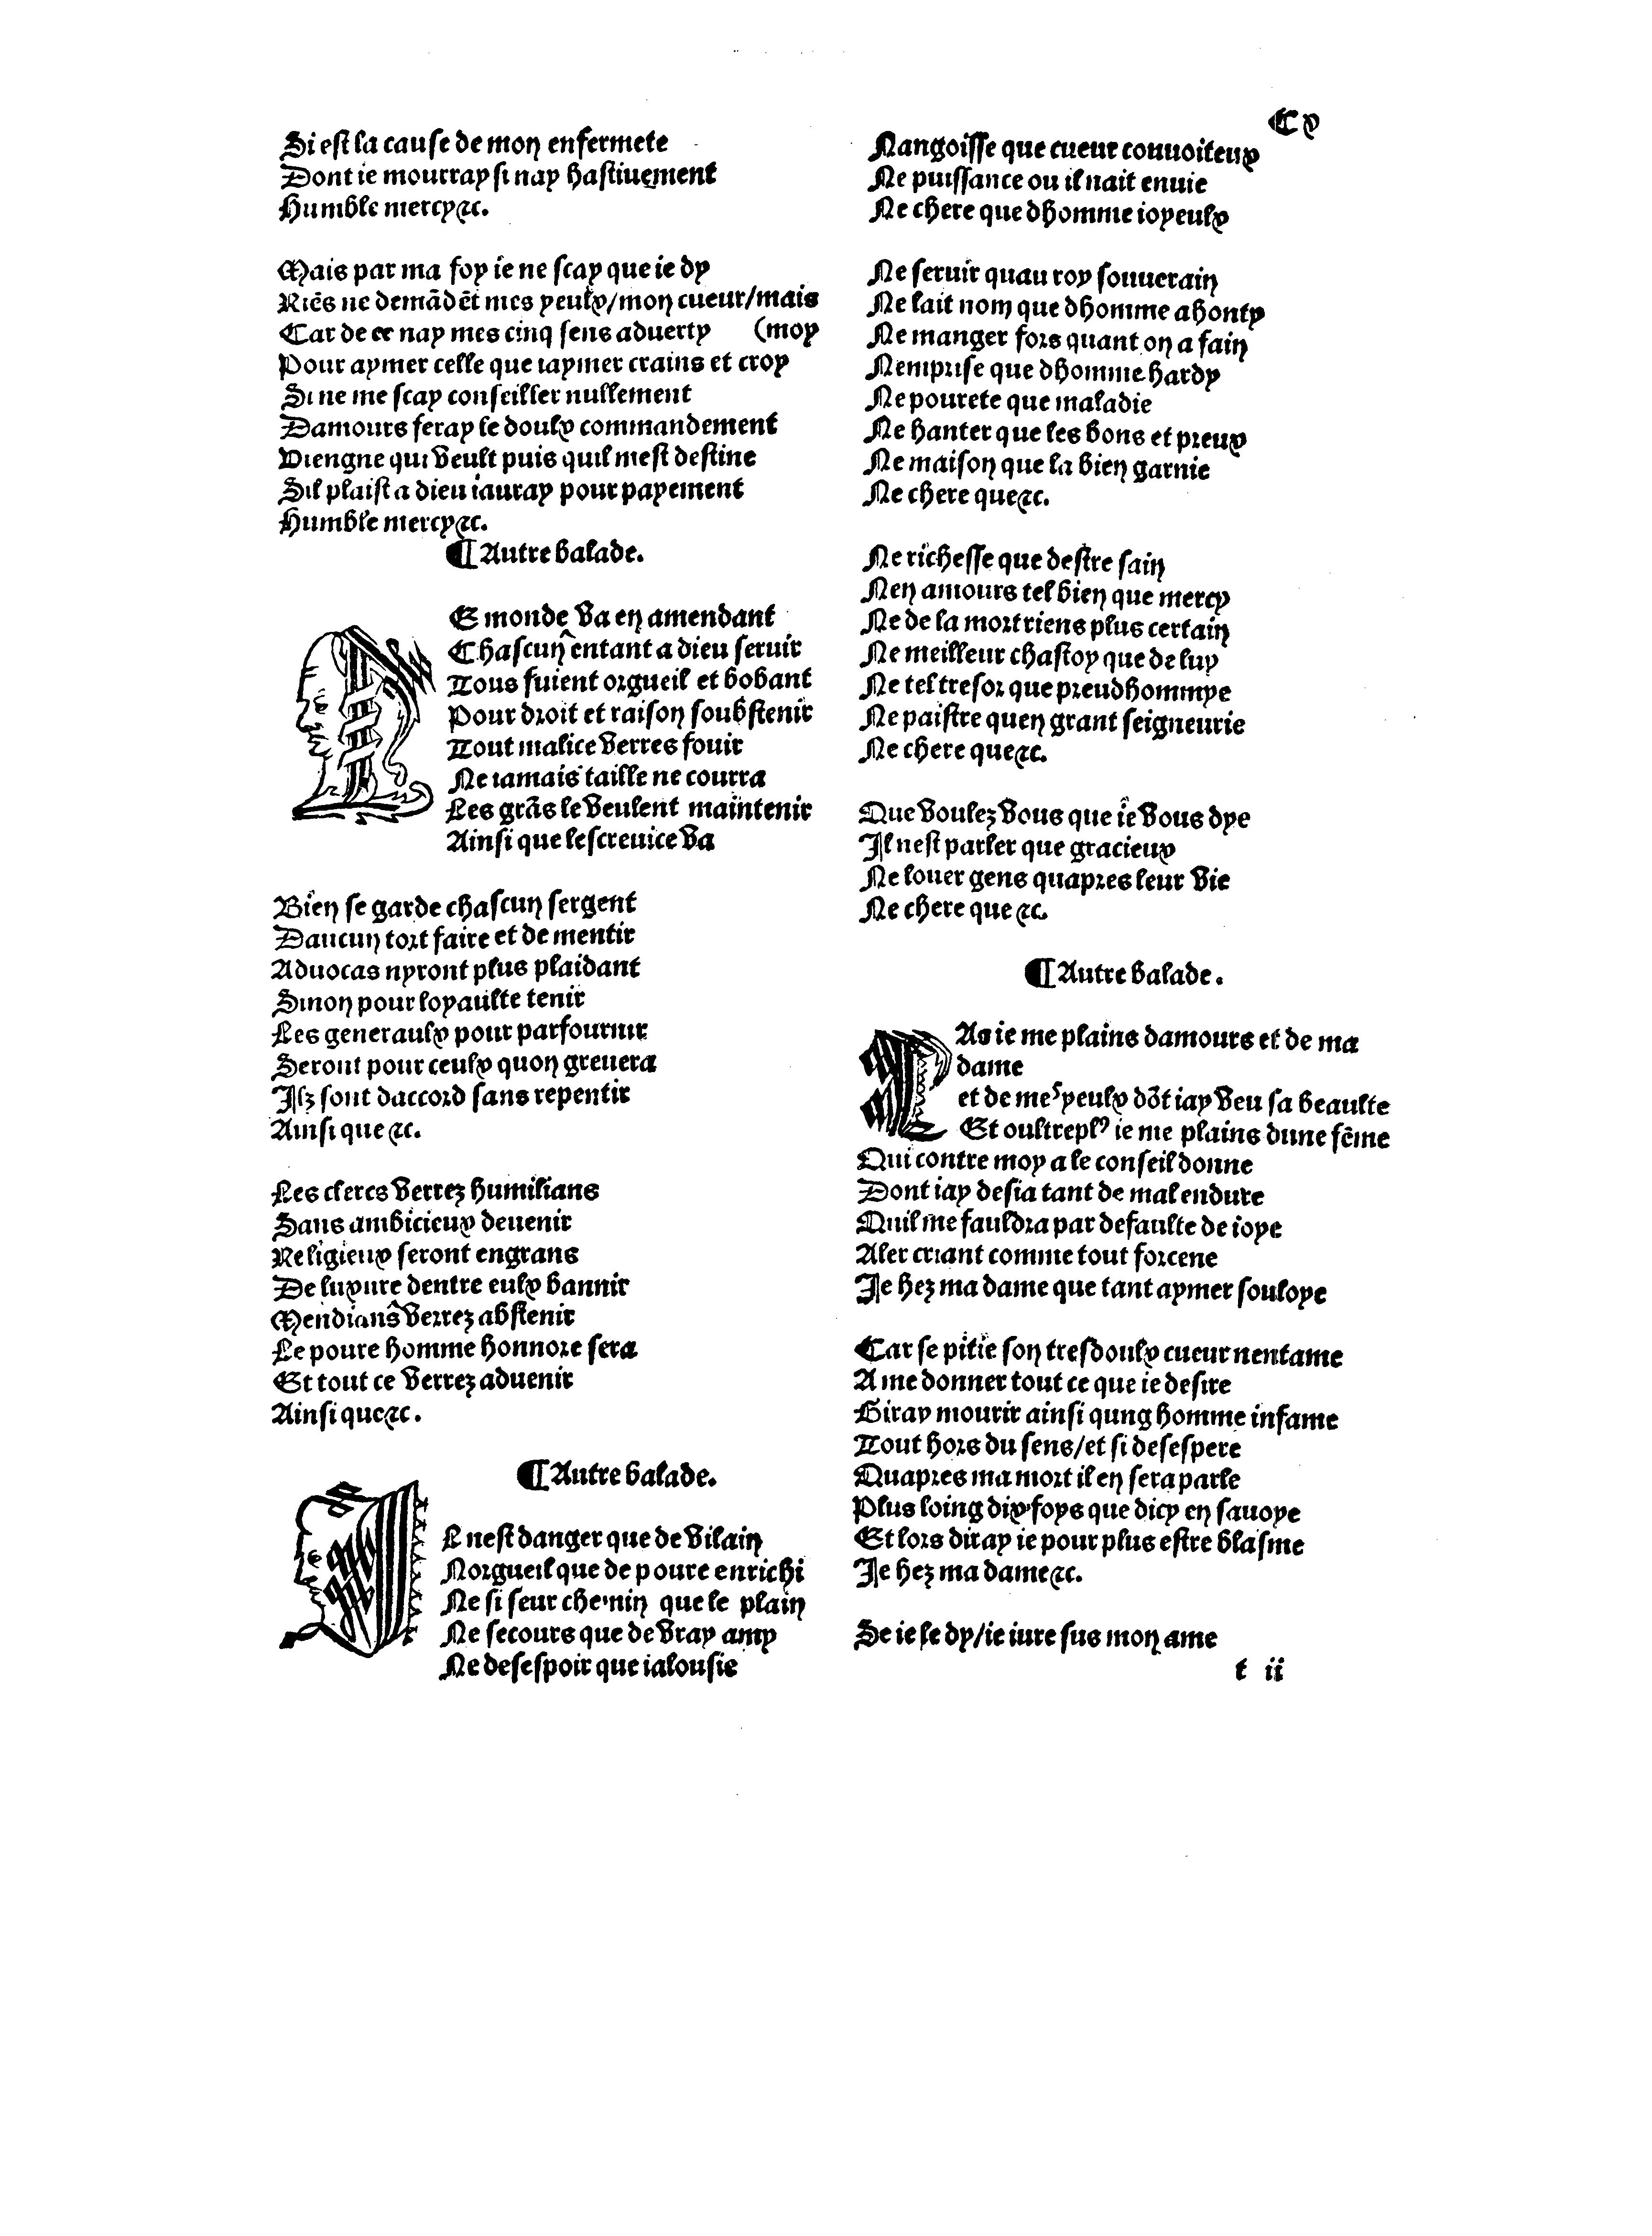 Cx
Si est la cause de mon enfermete
Dont ie mourray si nay hastiuement
Humble mercy⁊c.
Mais par ma foy ie ne scay que ie dy
Riēs ne demādēt mes yeulx/mon cueur/mais
Car de ce nay mes cinq sens aduerty (moy
Pour aymer celle que iaymer crains et croy
Si ne me scay conseiller nullement
Damours feray le doulx commandement
Viengne qui veult puis quil mest destine
Sil plaist a dieu iauray pour payement
Humble mercy⁊c.
¶Autre balade.
E monde va en amendant
Chascun entant a dieu seruir
Tous fuient orgueil et bobant
Pour droit et raison soubstenir
Tout malice verres fouir
Ne iamais taille ne courra
Les grās le veulent maintenir
Ainsi que lescreuice va
Bien se garde chascun sergent
Daucun tort faire et de mentir
Aduocas nyront plus plaidant
Sinon pour loyaulte tenir
Les generaulx pour parfournir
Seront pour ceulx quon greuera
Ilz sont daccord sans repentir
Ainsi que ⁊c.
Les clercs verrez humilians
Sans ambicieux deuenir
Religieux seront engrans
De luxure dentre eulx bannir
Mendians verrez abstenir
Le poure homme honnore sera
Et tout ce verrez aduenir
Ainsi que⁊c.
¶Autre balade.
L nest danger que de vilain
Norgueil que de poure enrichi
Ne si seur chemin que le plain
Ne secours que de vray amy
Ne desespoir que ialousie
Nangoisse que cueur conuoiteux
Ne puissance ou il nait enuie
Ne chere que dhomme ioyeulx
Ne seruir quau roy souuerain
Ne lait nom que dhomme ahonty
Ne manger fors quant on a fain
Nemprise que dhomme hardy
Ne pourete que maladie
Ne hanter que les bons et preux
Ne maison que la bien garnie
Ne chere que⁊c.
Ne richesse que destre sain
Nen amours tel bien que mercy
Ne de la mort riens plus certain
Ne meilleur chastoy que de luy
Ne tel tresor que preudhommye
Ne paistre quen grant seigneurie
Ne chere que⁊c.
Que voulez vous que ie vous dye
Il nest parler que gracieux
Ne louer gens quapres leur vie
Ne chere que ⁊c.
¶Autre balade.
As ie me plains damours et de ma
dame
et de mes yeulx dōt iay veu sa beaulte
Et oultreplꝰ ie me plains dune fēme
Qui contre moy a le conseil donne
Dont iay desia tant de mal endure
Quil me fauldra par defaulte de ioye
Aler criant comme tout forcene
Je hez ma dame que tant aymer souloye
Car se pitie son tresdoulx cueur nentame
A me donner tout ce que ie desire
Giray mourir ainsi qung homme infame
Tout hors du sens/et si desespere
Quapres ma mort il en sera parle
Plus loing dix foys que dicy en sauoye
Et lors diray ie pour plus estre blasme
Je hez ma dame⁊c.
Se ie le dy/ie iure sus mon ame
t ii